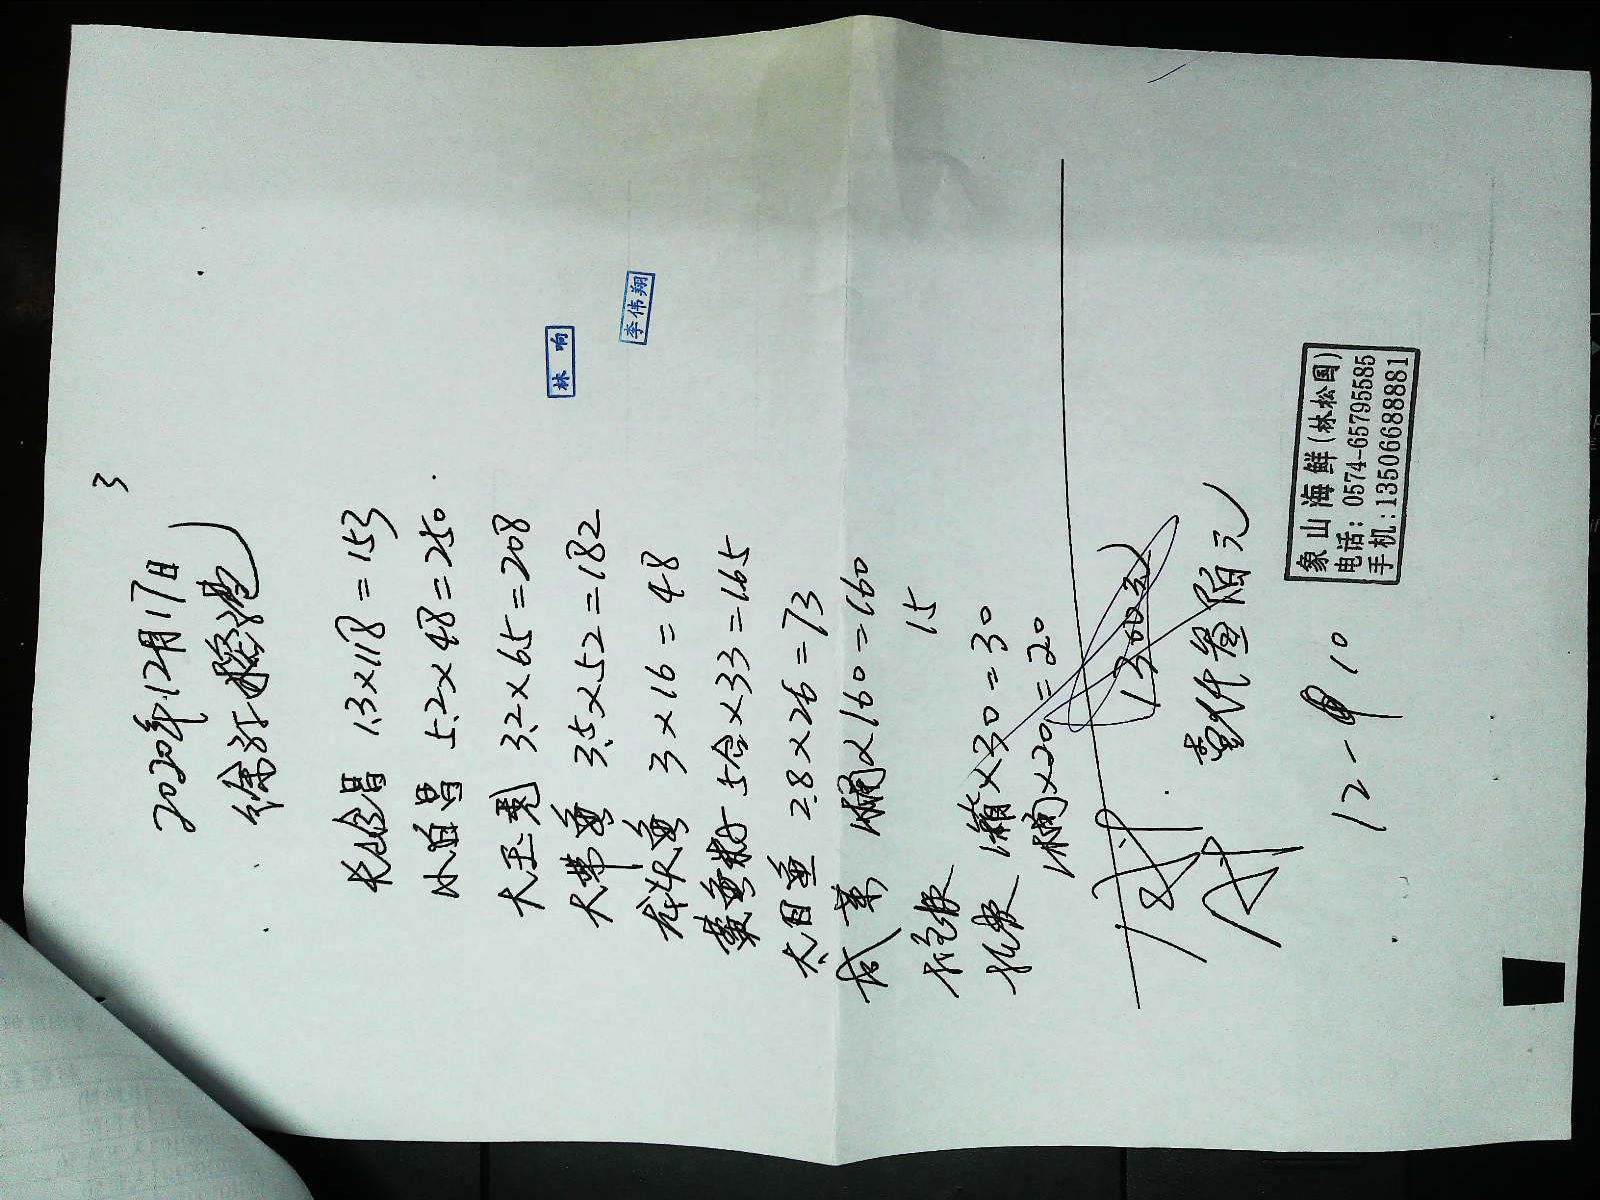 3
2020年12月17日
大 1.3×118=153
小白昌 5.2×48=250
大玉 3.2×65=208
大带鱼 3.5×52=182
鱼 3×16=48
鱼 5合×33=165
大目鱼 2.8×26=73
咸 1桶×160=160
15
1箱×30=30
1桶×20=20
1300元
壹仟叁陌元
12-10
林响
李伟翔
象山海鲜(林松国)
电话:0574-65795585
手机:13506688881